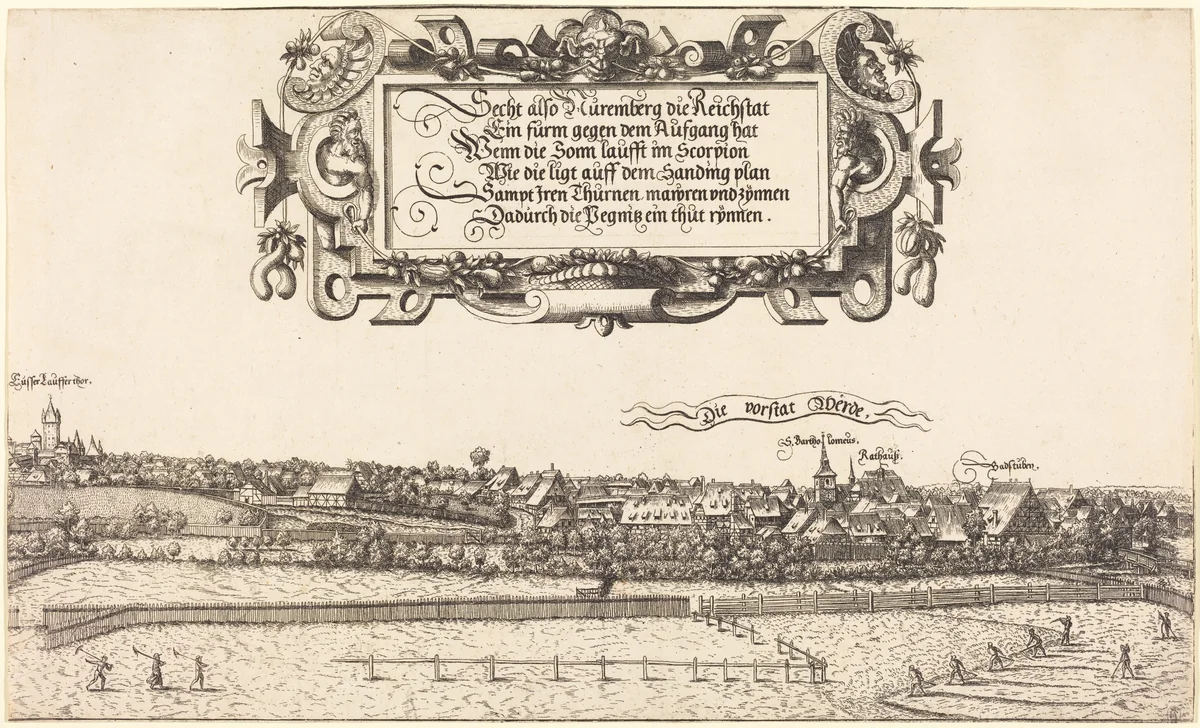 Secht also Nuremberg die Reichstat
Ein furm gegen dem Aufgang hat
Wenn die Sonn laufft im Scorpion
Wie die ligt auff dem Sanding plan
Sampt Iren Thurnen mawren vnd zynnen
Dadurch die Pegnitz ein thut rynnen.
Eusser Lauffer thor.
Die vorstat Werde.
S. Bartholomeus.
Rathauß.
Badstuben.